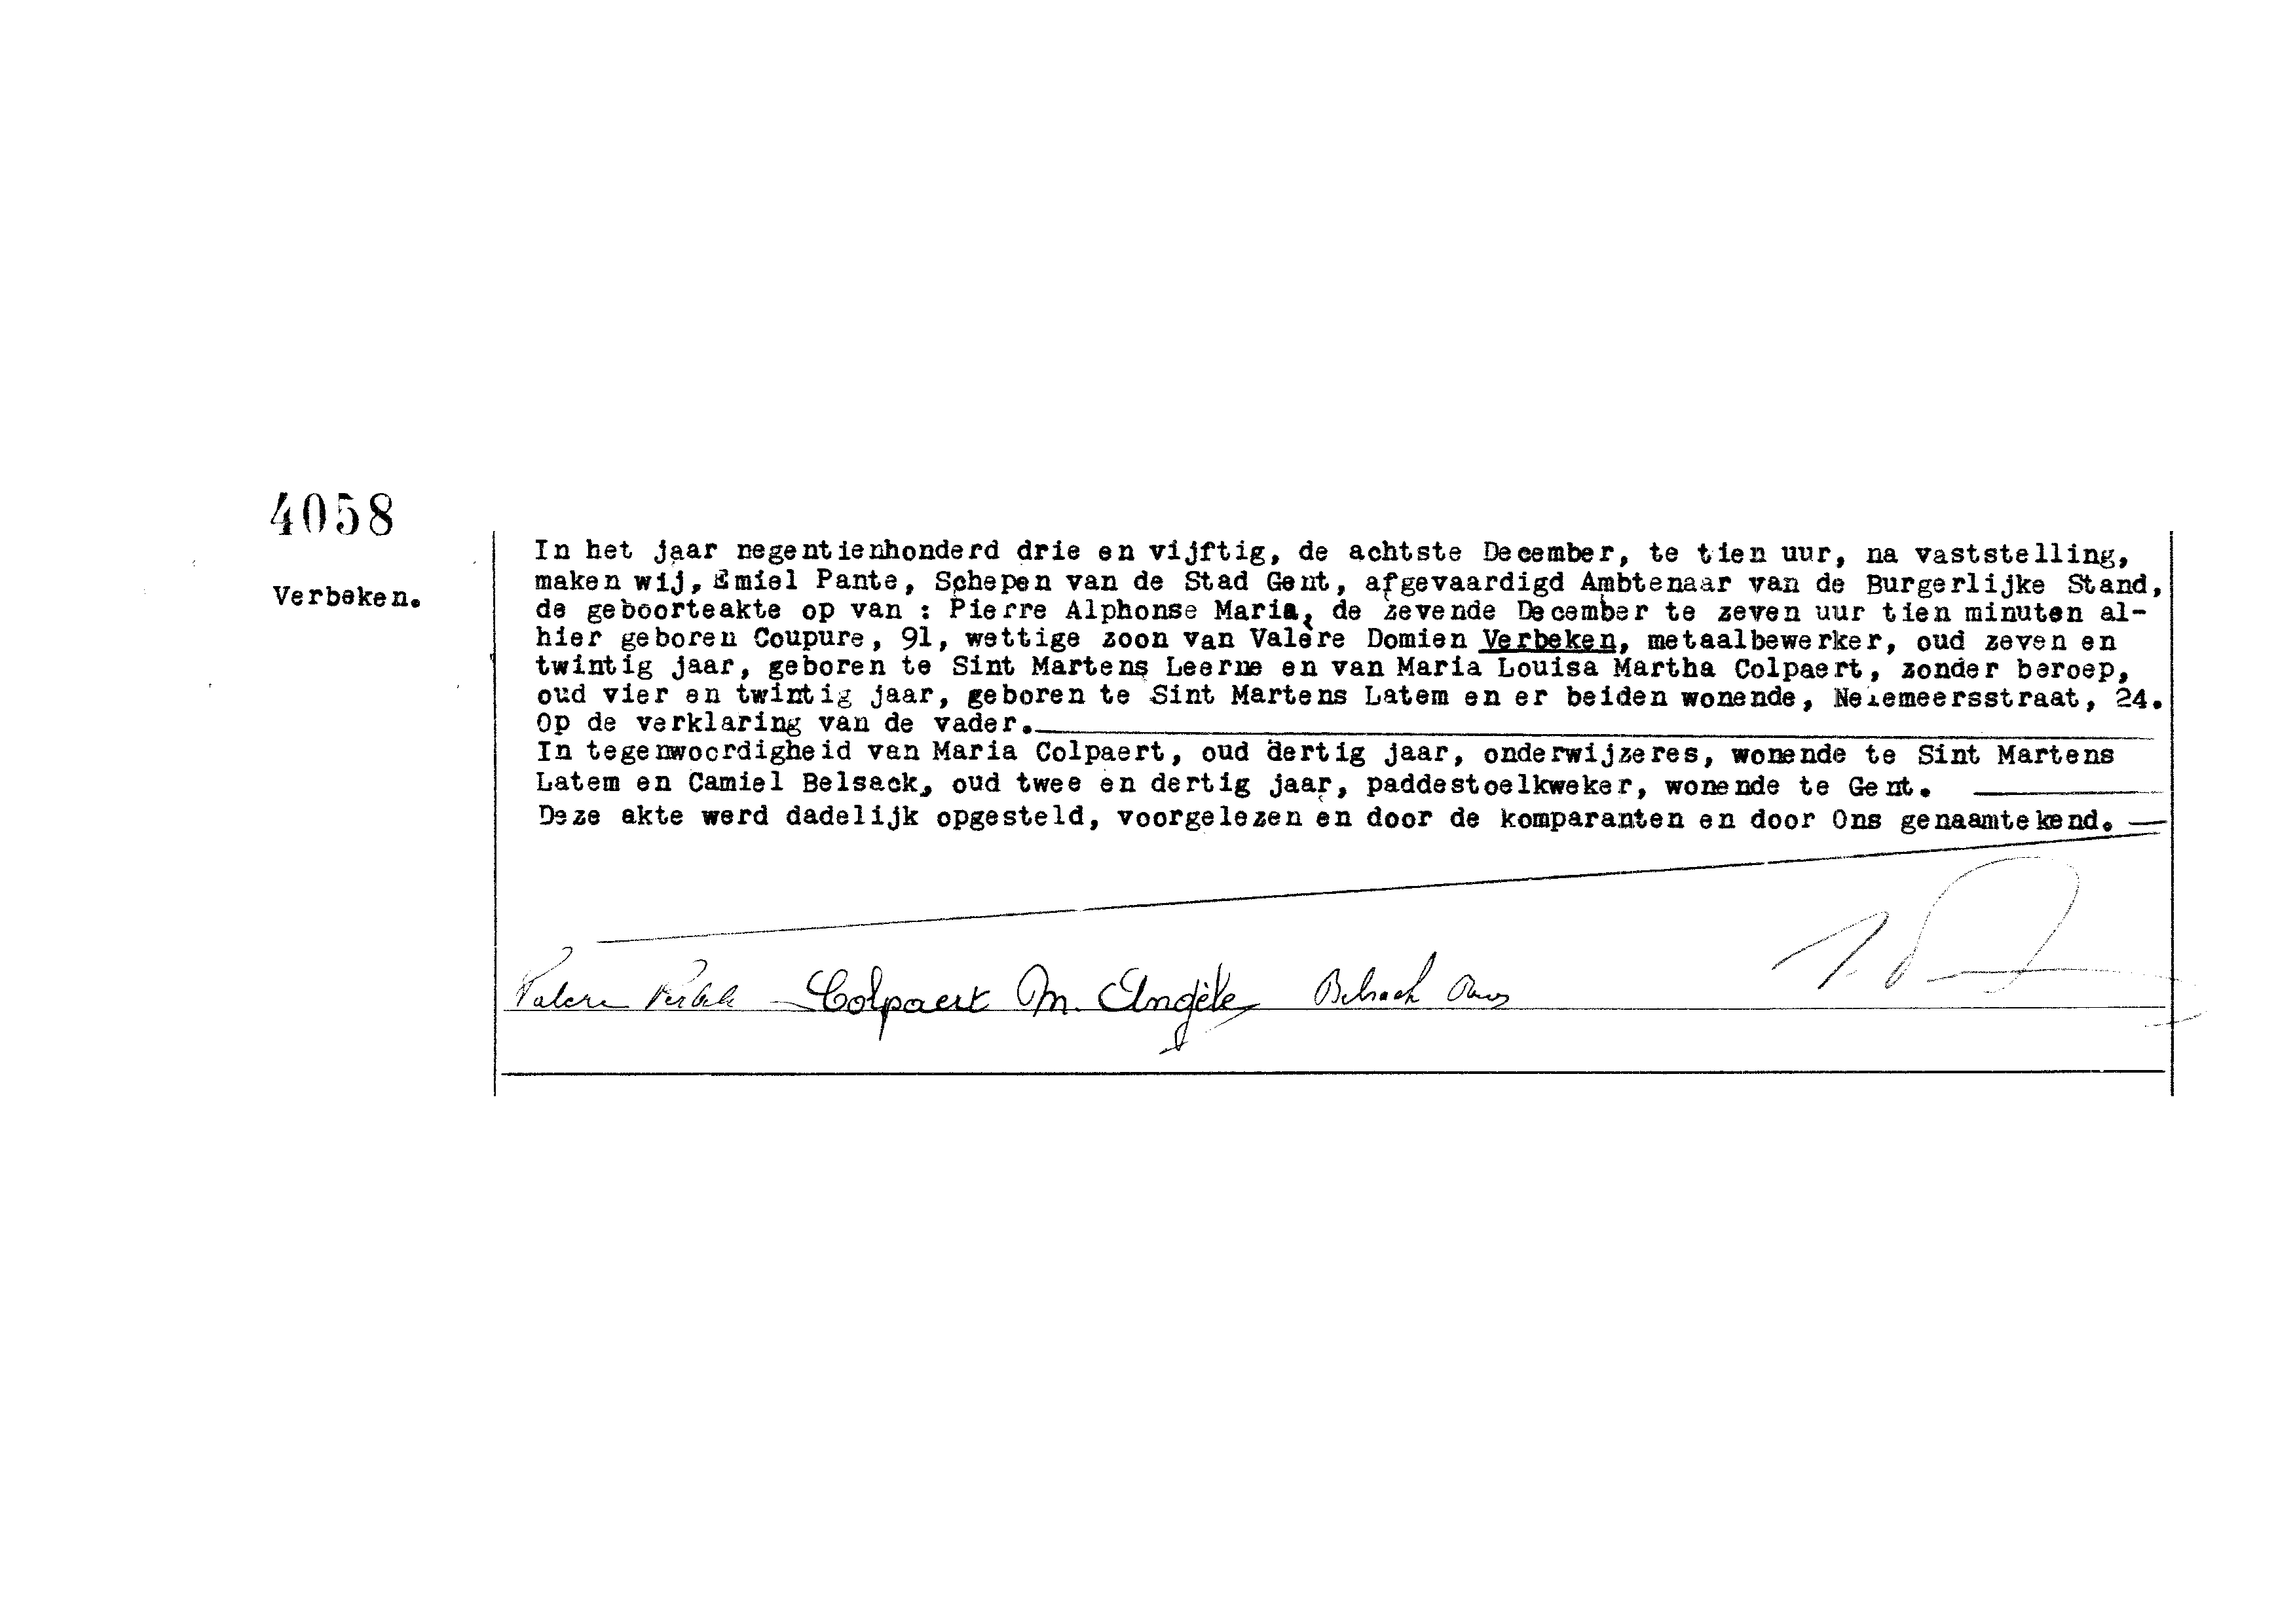 4058
Verbeken.
In het jaar negentienhonderd drie en vijftig, de achtste December, te tien uur, na vaststelling,
maken wij, Emiel Pante, Schepen van de Stad Gent, afgevaardigd Ambtenaar van de Burgerlijke Stand,
de geboorteakte op van : Pierre Alphonse Maria, de zevende December te zeven uur tien minuten al-
hier geboren Coupure, 91, wettige zoon van Valère Domien Verbeken, metaalbewerker, oud zeven en
twintig jaar, geboren te Sint Martens Leerne en van Maria Louisa Martha Colpaert, zonder beroep,
oud vier en twintig jaar, geboren te Sint Martens Latem en er beiden wonende, Nelemeersstraat, 24.
Op de verklaring van de vader.
In tegenwoordigheid van Maria Colpaert, oud dertig jaar, onderwijzeres, wonende te Sint Martens
Latem en Camiel Belsack, oud twee en dertig jaar, paddestoelkweker, wonende te Gent.
Deze akte werd dadelijk opgesteld, voorgelezen en door de komparanten en door Ons genaamtekend.
Valere Colpaert M. Angèle Belsack